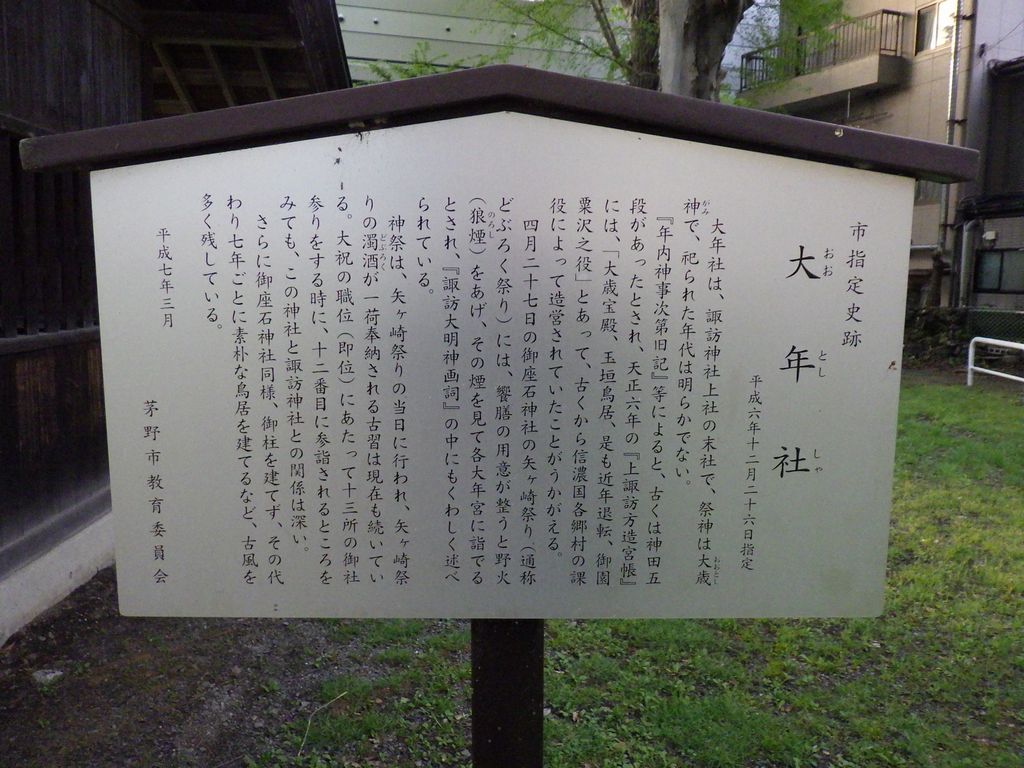 市指定史跡
大年社
おお とし しゃ
平成六年十二月二十六日指定
大年社は、諏訪神社上社の末社で、祭神は大歳
おおとし
神で、祀られた年代は明らかでない。
がみ
『年内神事次第旧記』等によると、古くは神田五
段があったとされ、天正六年の『上諏訪方造宮帳』
には、「大歳宝殿、玉垣鳥居、是も近年退転、御園
粟沢之役」とあって、古くから信濃国各郷村の課
役によって造営されていたことがうかがえる。
四月二十七日の御座石神社の矢ヶ崎祭り(通称
どぶろく祭り)には、饗膳の用意が整うと野火
(狼煙)をあげ、その煙を見て各大年宮に詣でる
のろし
とされ、『諏訪大明神画詞』の中にもくわしく述べ
られている。
神祭は、矢ヶ崎祭りの当日に行われ、矢ヶ崎祭
りの濁酒が一荷奉納される古習は現在も続いてい
どぶろく
る。大祝の職位(即位)にあたって十三所の御社
参りをする時に、十二番目に参詣されるところを
みても、この神社と諏訪神社との関係は深い。
さらに御座石神社同様、御柱を建てず、その代
わり七年ごとに素朴な鳥居を建てるなど、古風を
多く残している。
平成七年三月
茅野市教育委員会